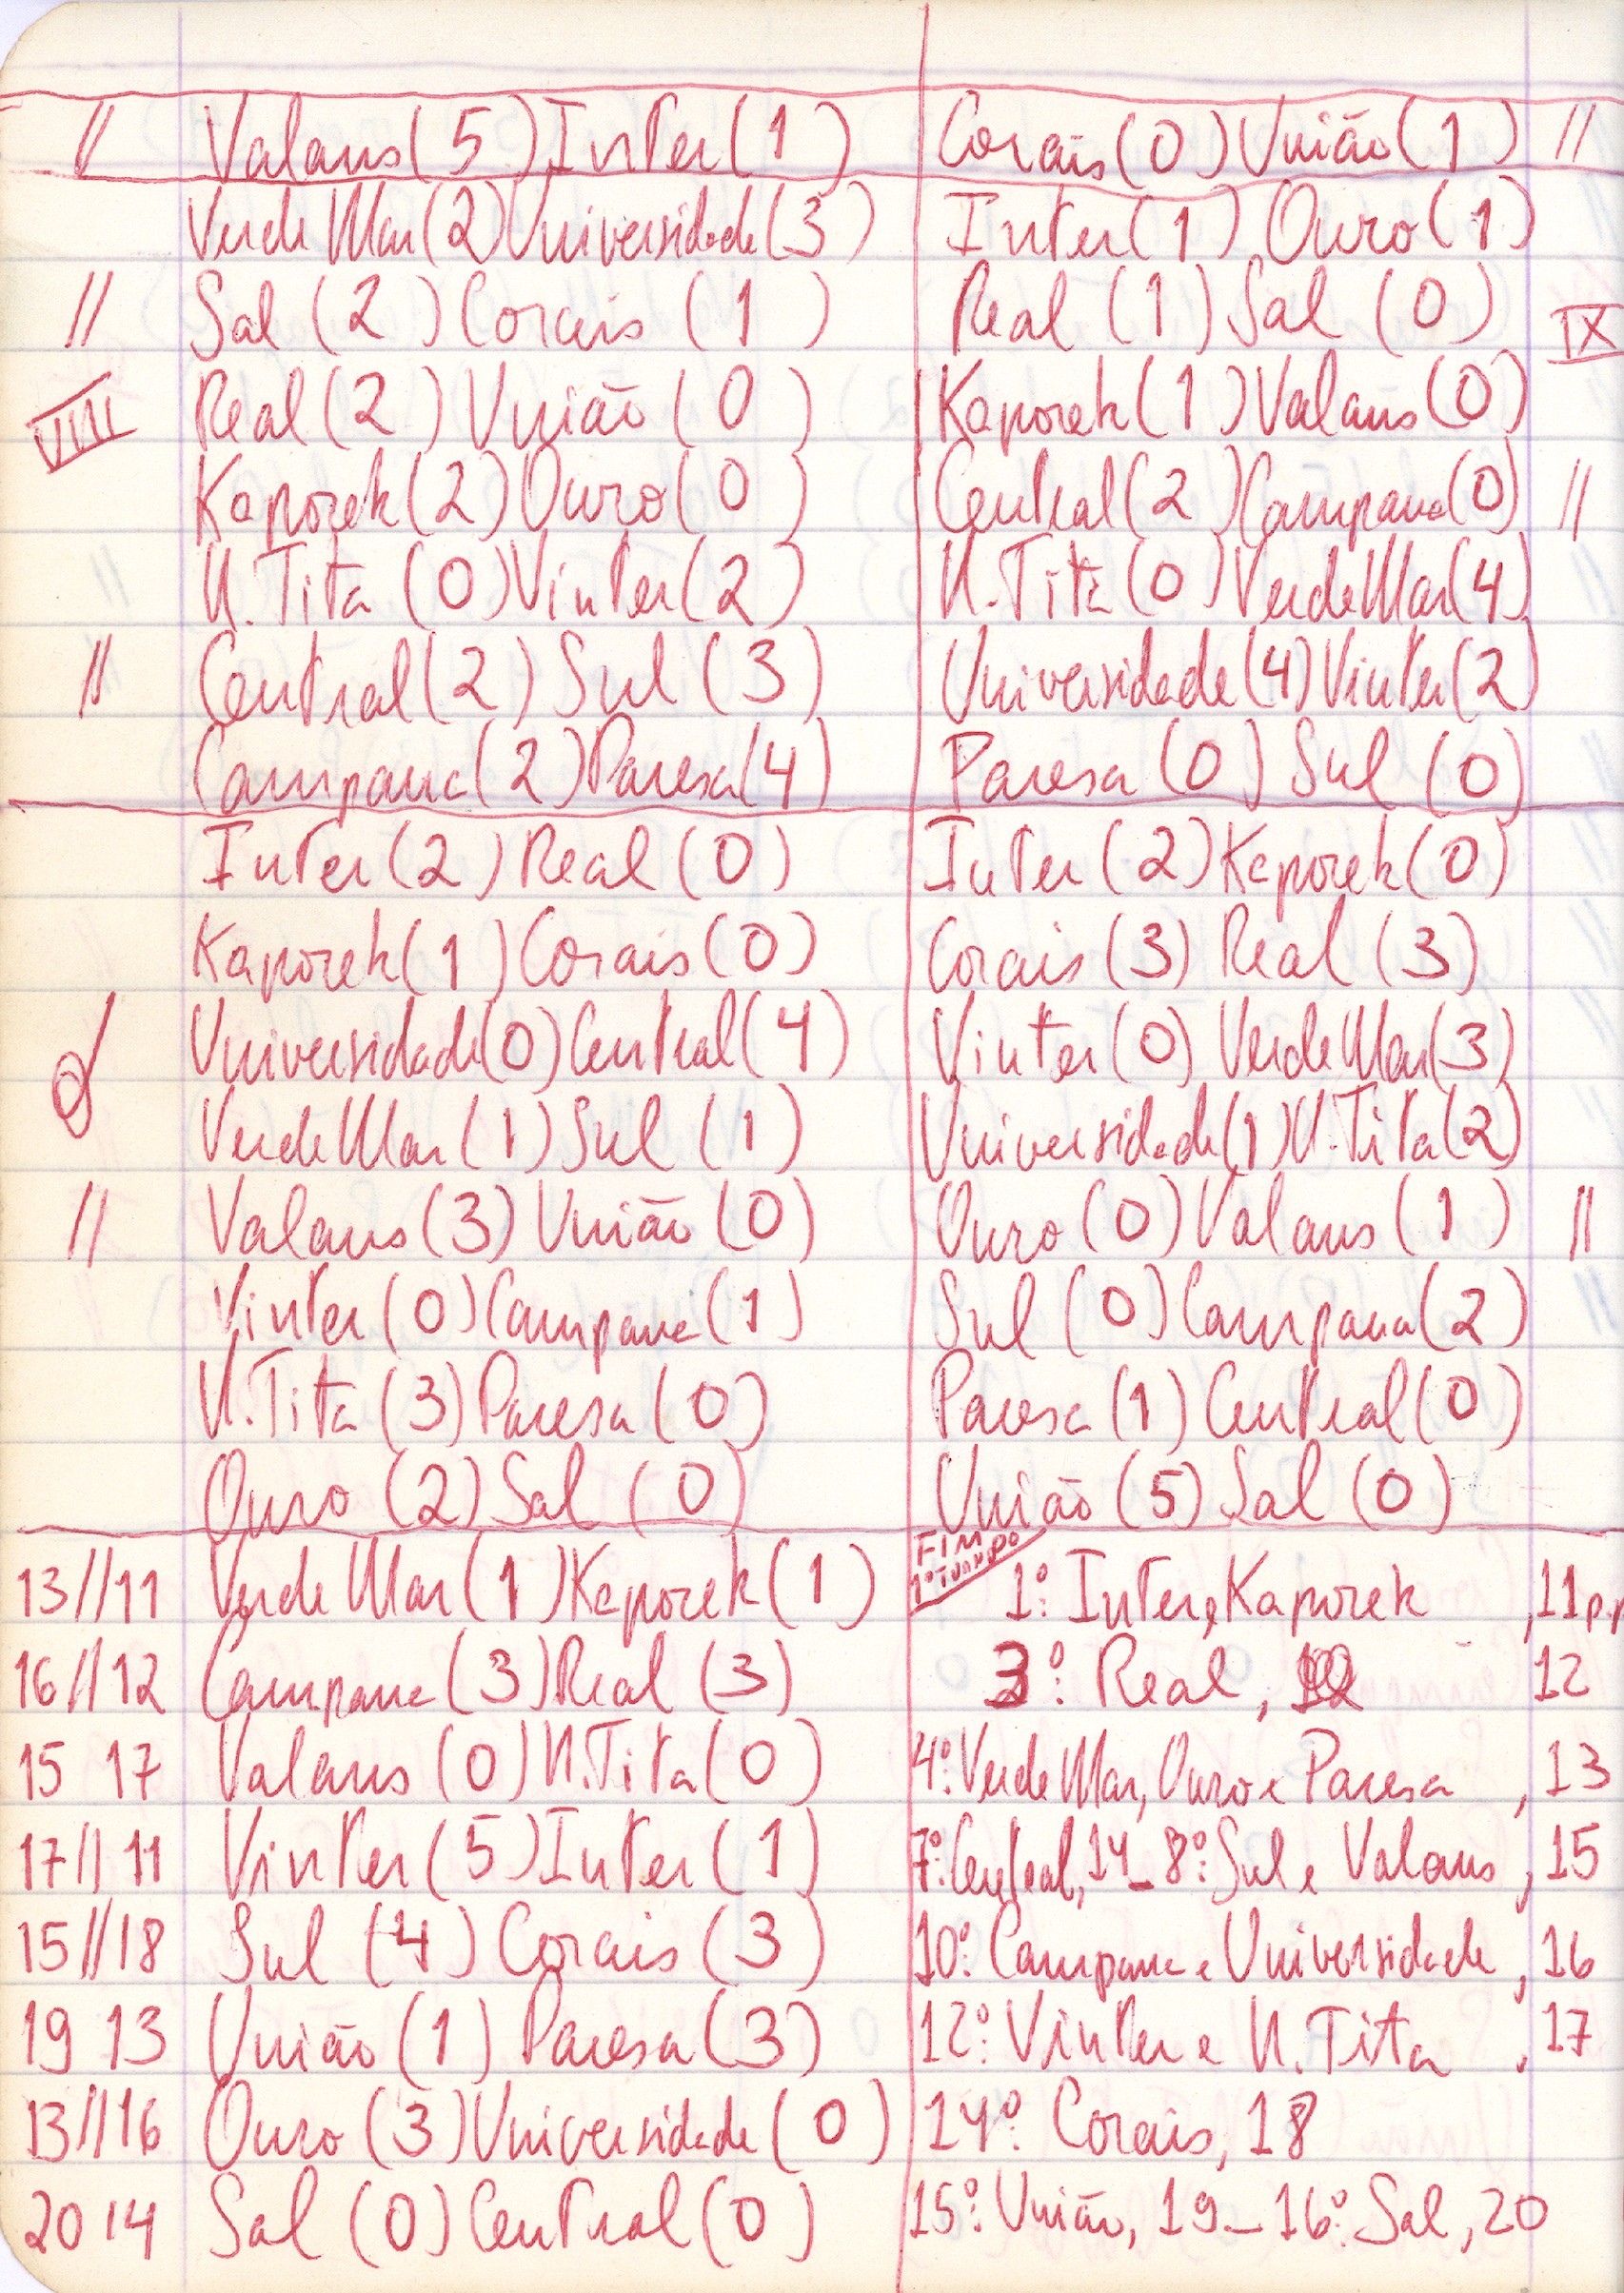 // Valans (5) Inter (1) Corais (0) União (1) //
Verde Mar (2) Universidade (3) Inter (1) Ouro (1)
// Sal (2) Corais (1) Real (1) Sal (0) IX
VIII Real (2) União (0) Kaporek (1) Valans (0)
Kaporek (2) Ouro (0) Central (2) Campana (0) //
N. Tita (0) Vinter (2) N. Tita (0) Verde Mar (4)
// Central (2) Sul (3) Universidade (4) Vinter (2)
Campana (2) Paresa (4) Paresa (0) Sul (0)
Inter (2) Real (0) Inter (2) Kaporek (0)
Kaporek (1) Corais (0) Corais (3) Real (3)
Universidade (0) Central (4) Vinter (0) Verde Mar (3)
Verde Mar (1) Sul (1) Universidade (1) N. Tita (2)
// Valans (3) União (0) Ouro (0) Valans (1) //
Vinter (0) Campana (1) Sul (0) Campana (2)
N. Tita (3) Paresa (0) Paresa (1) Central (0)
Ouro (2) Sal (0) União (5) Sal (0)
FIM
1º TURNO
13//11 Verde Mar (1) Kaporek (1) 1º: Inter e Kaporek, 11 p.p
16//12 Campana (3) Real (3) 3º: Real, 12
15 17 Valans (0) N. Tita (0) 4º: Verde Mar, Ouro e Paresa, 13
17//11 Vinter (5) Inter (1) 7º: Central, 14 _ 8º: Sul e Valans, 15
15//18 Sul (4) Corais (3) 10º: Campana e Universidade, 16
19 13 União (1) Paresa (3) 12º: Vinter e N. Tita, 17
13//16 Ouro (3) Universidade (0) 14º: Corais, 18
20 14 Sal (0) Central (0) 15º: União, 19 _ 16º: Sal, 20